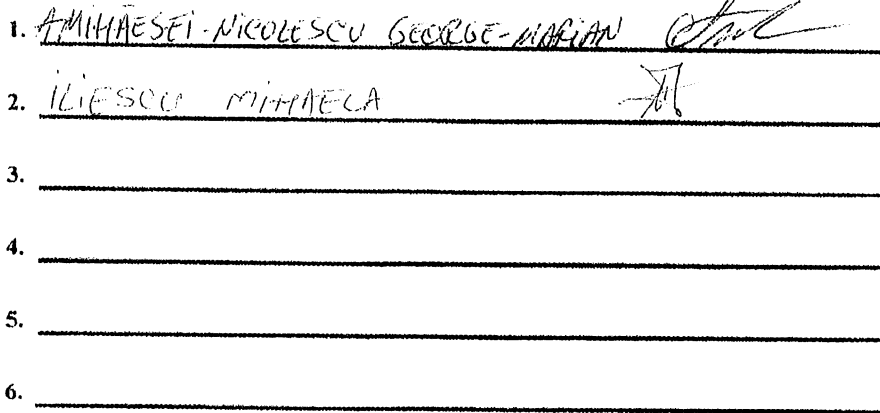 1. AMIHĂESEI-NICOLESCU GEORGE-MARIAN
2. ILIESCU MIHAELA
3.
4.
5.
6.